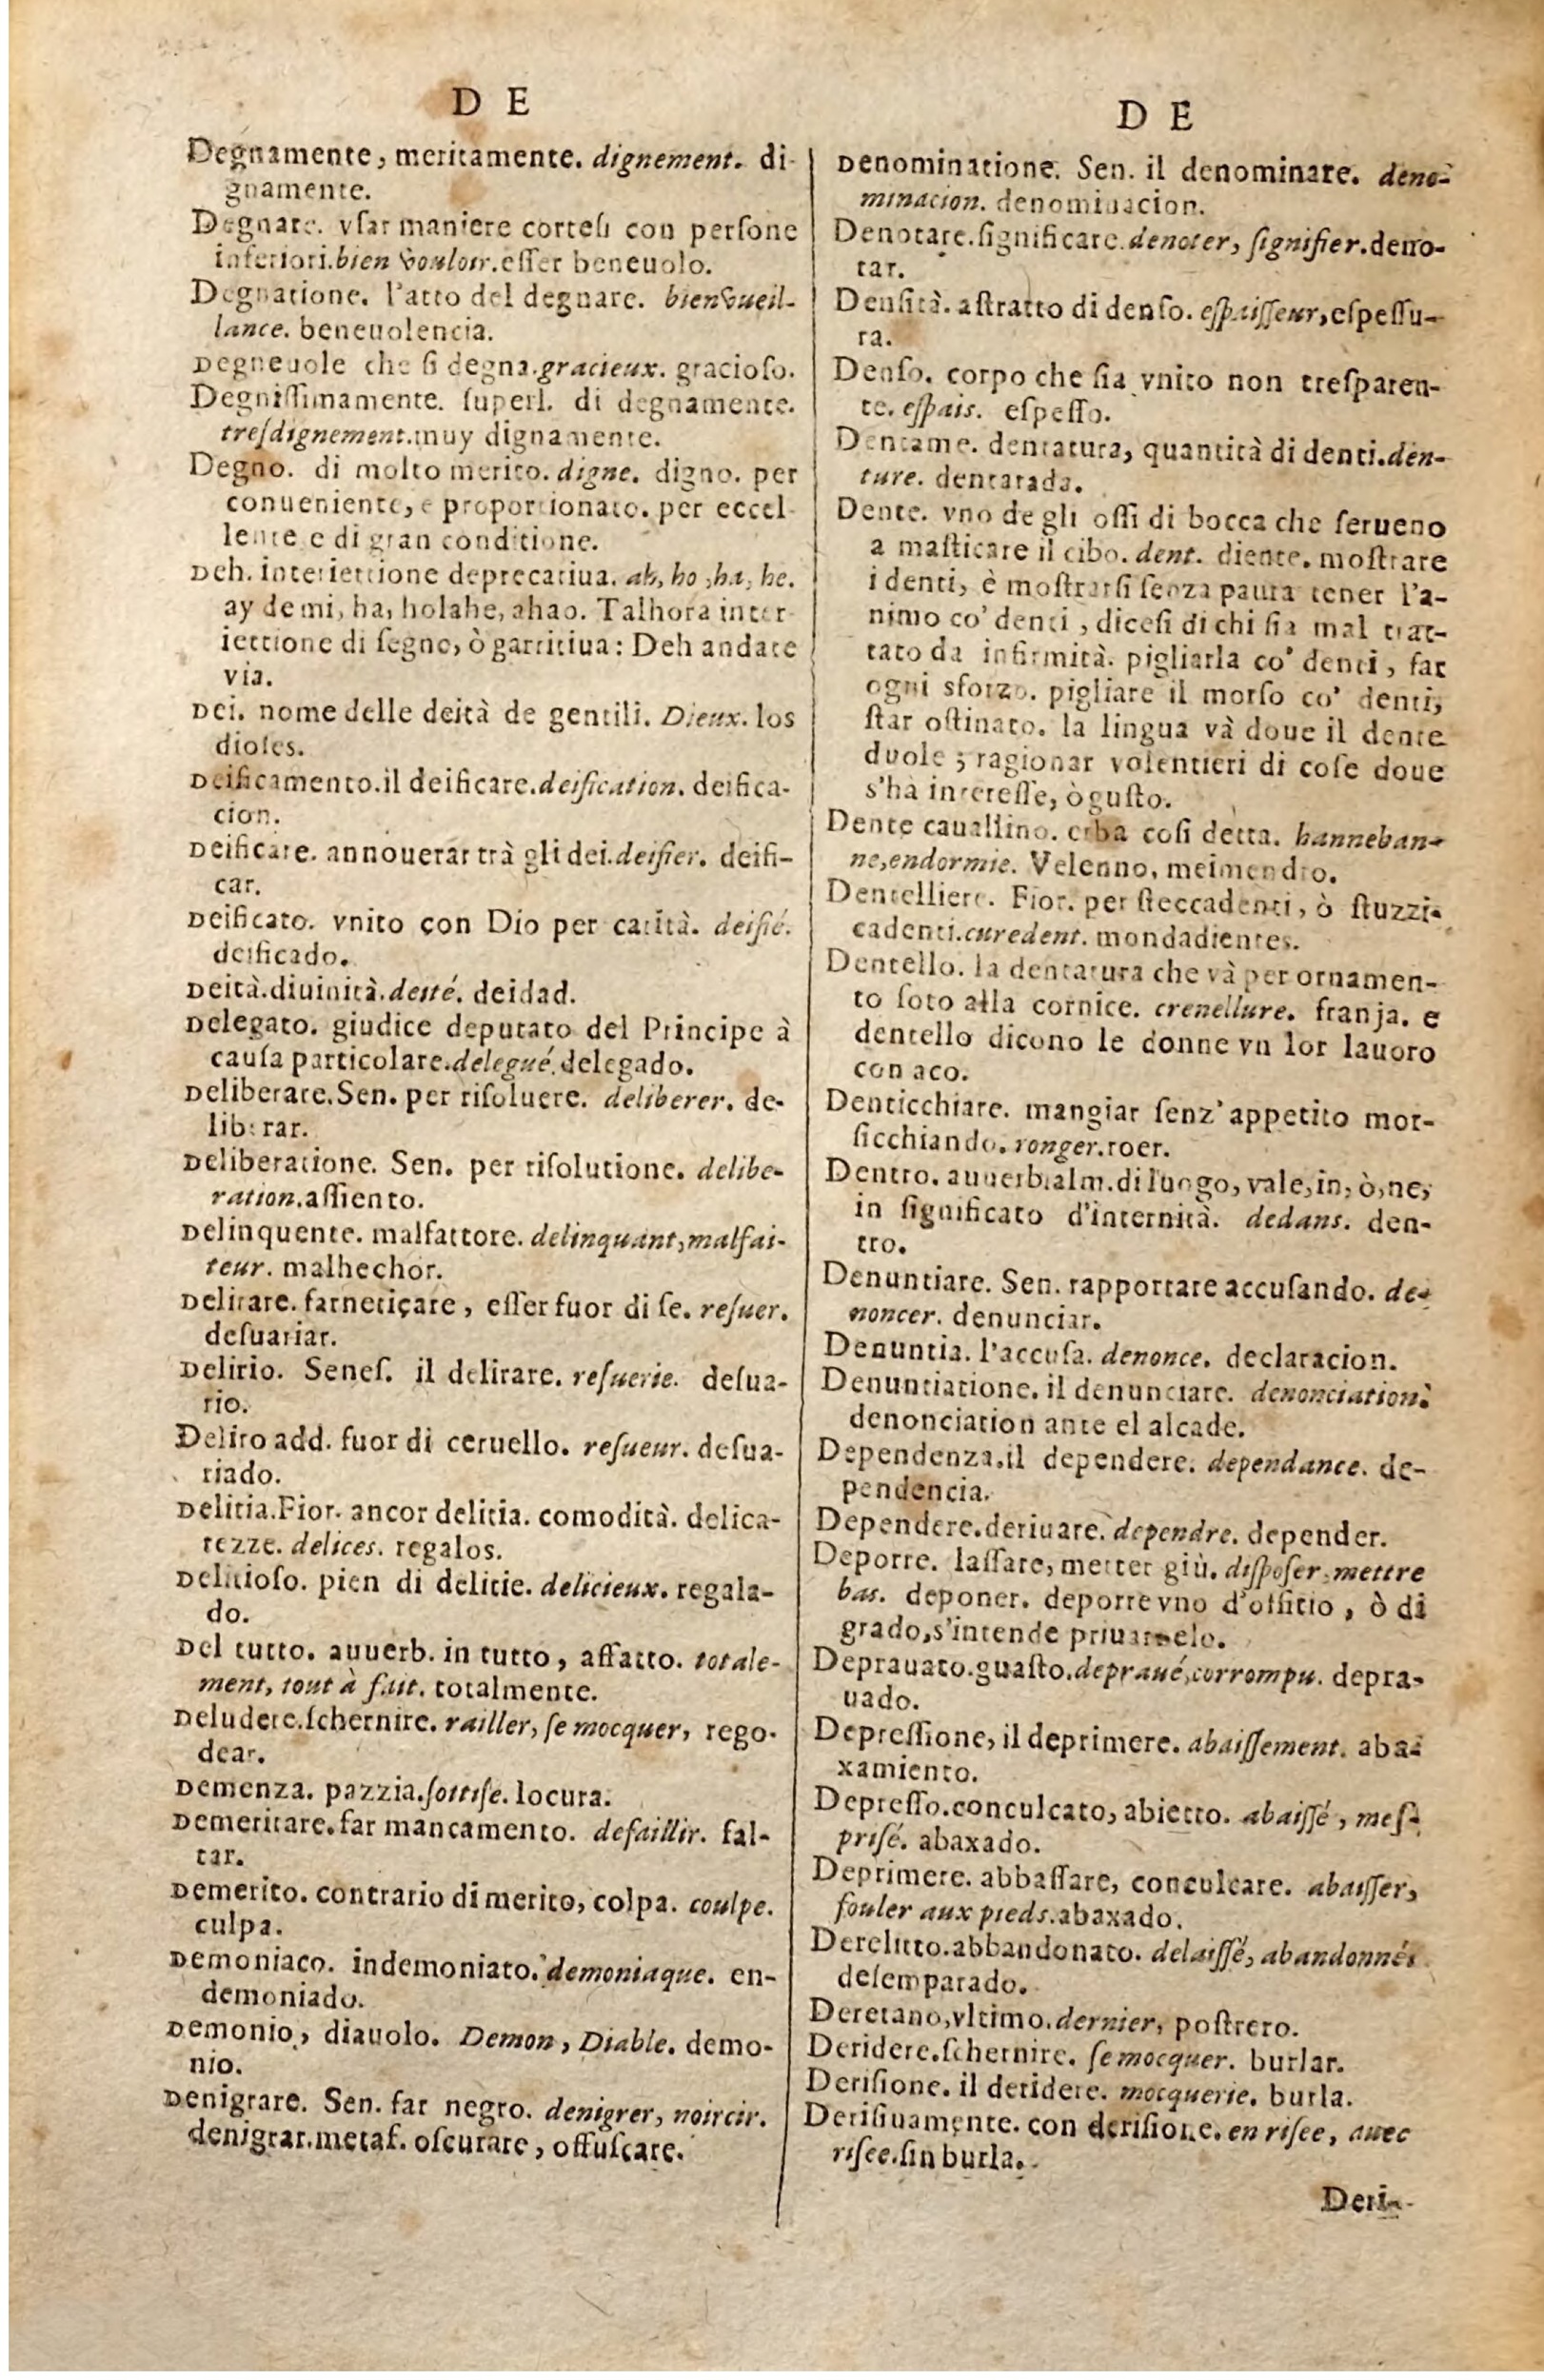 D E
Degnamente, meritamente. dignement. di-
gnamente.
Degnare. vſar maniere corteſi con perſone
inferiori. bien vouloir. eſſer beneuolo.
Degnatione. l'atto del degnare. bienvueil-
lance. beneuolencia.
Degneuole che ſi degna. gracieux. gracioſo.
Degniſſimamente. ſuperl. di degnamente.
treſdignement. muy dignamente.
Degno. di molto merito. digne. digno. per
conueniente, e proportionato. per eccel-
lente e di gran conditione.
Deh. interiettione deprecatiua. ah, ho, ha, he.
ay de mi, ha, holahe, ahao. Talhora inter-
iettione di ſegno, ò garritiua: Deh andate
via.
Dei. nome delle deità de gentili. Dieux. los
dioſes.
Deificamento. il deificare. deification. deifica-
cion.
Deificare. annouerar trà gli dei. deifier. deifi-
car.
Deificato. vnito con Dio per carità. deifié.
deificado.
Deità. diuinità. deité. deidad.
Delegato. giudice deputato del Principe à
cauſa particolare. delegué. delegado.
Deliberare. Sen. per riſoluere. deliberer. de-
liberar.
Deliberatione. Sen. per riſolutione. delibe-
ration. aſſiento.
Delinquente. malfattore. delinquant, malfai-
teur. malhechor.
Delirare. farneticare, eſſer fuor di ſe. reſuer.
deſuariar.
Delirio. Seneſ. il delirare. reſuerie. deſua-
rio.
Deliro add. fuor di ceruello. reſueur. deſua-
riado.
Delitia. Fior. ancor delitia. comodità. delica-
tezze. delices. regalos.
Delitioſo. pien di delitie. delicieux. regala-
do.
Del tutto. auuerb. in tutto, affatto. totale-
ment, tout à fait. totalmente.
Deludere. ſchernire. railler, ſe mocquer, rego-
dear.
Demenza. pazzia. ſottiſe. locura.
Demeritare. far mancamento. defaillir. fal-
tar.
Demerito. contrario di merito, colpa. coulpe.
culpa.
Demoniaco. indemoniato. demoniaque. en-
demoniado.
Demonio, diauolo. Demon, Diable. demo-
nio.
Denigrare. Sen. far negro. denigrer, noircir.
denigrar. metaf. oſcurare, offuſcare.
D E
Denominatione. Sen. il denominare. deno-
minacion. denominacion.
Denotare. ſignificare. denoter, ſignifier. deno-
tar.
Denſità. aſtratto di denſo. eſpaiſſeur, eſpeſſu-
ra.
Denſo. corpo che ſia vnito non treſparen-
te. eſpais. eſpeſſo.
Dentame. dentatura, quantità di denti. den-
ture. dentarada.
Dente. vno de gli oſſi di bocca che ſerueno
a maſticare il cibo. dent. diente. moſtrare
i denti, è moſtrarſi ſenza paura tener l'a-
nimo co' denti, diceſi di chi ſia mal trat-
tato da infirmità. pigliarla co' denti, far
ogni sforzo. pigliare il morſo co' denti,
ſtar oſtinato. la lingua và doue il dente
duole; ragionar volentieri di coſe doue
s'hà intereſſe, ò guſto.
Dente cauallino. erba coſi detta. hanneban-
ne, endormie. Velenno, meimendro.
Dentelliere. Fior. per ſteccadenti, ò ſtuzzi-
cadenti. curedent. mondadientes.
Dentello. la dentatura che và per ornamen-
to ſoto alla cornice. crenellure. franja. e
dentello dicono le donne vn lor lauoro
con aco.
Denticchiare. mangiar ſenz'appetito mor-
ſicchiando. ronger. roer.
Dentro. auuerb. alm. di luogo, vale, in, ò, ne,
in ſignificato d'internità. dedans. den-
tro.
Denuntiare. Sen. rapportare accuſando. de-
noncer. denunciar.
Denuntia. l'accuſa. denonce. declaracion.
Denuntiatione. il denunciare. denonciation.
denonciation ante el alcade.
Dependenza. il dependere. dependance. de-
pendencia.
Dependere. deriuare. dependre. depender.
Deporre. laſſare, metter giù. diſpoſer, mettre
bas. deponer. deporre vno d'offitio, ò di
grado, s'intende priuarnelo.
Deprauato. guaſto. depraué, corrompu. depra-
uado.
Depreſſione, il deprimere. abaiſſement. aba-
xamiento.
Depreſſo. conculcato, abietto. abaiſſé, meſ-
priſé. abaxado.
Deprimere. abbaſſare, conculcare. abaiſſer,
fouler aux pieds. abaxado.
Derelitto. abbandonato. delaiſſé, abandonné.
deſemparado.
Deretano, vltimo. dernier, poſtrero.
Deridere. ſchernire. ſe mocquer. burlar.
Deriſione. il deridere. mocquerie. burla.
Deriſiuamente. con deriſione. en riſee, auec
riſee. ſin burla.
Deri-